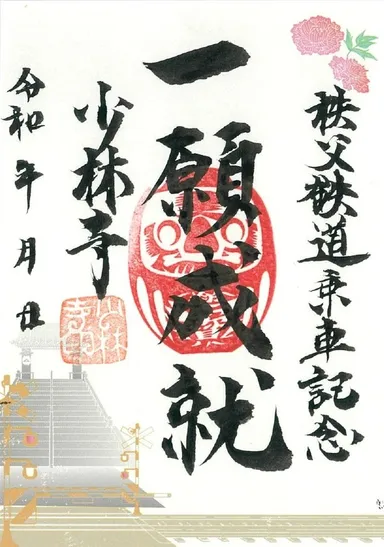 秩父鉄道乗車記念
一願成就
少林寺
令和 年 月 日